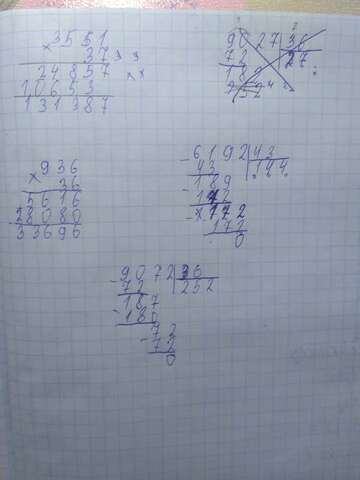 3551
× 37 3 3
24857 × ×
10653
131387
936
× 36
5616
28080
33696
- 6192 43
43 144
- 189
172
- 172
172
0
- 9072 36
72 252
- 187
180
- 72
72
0